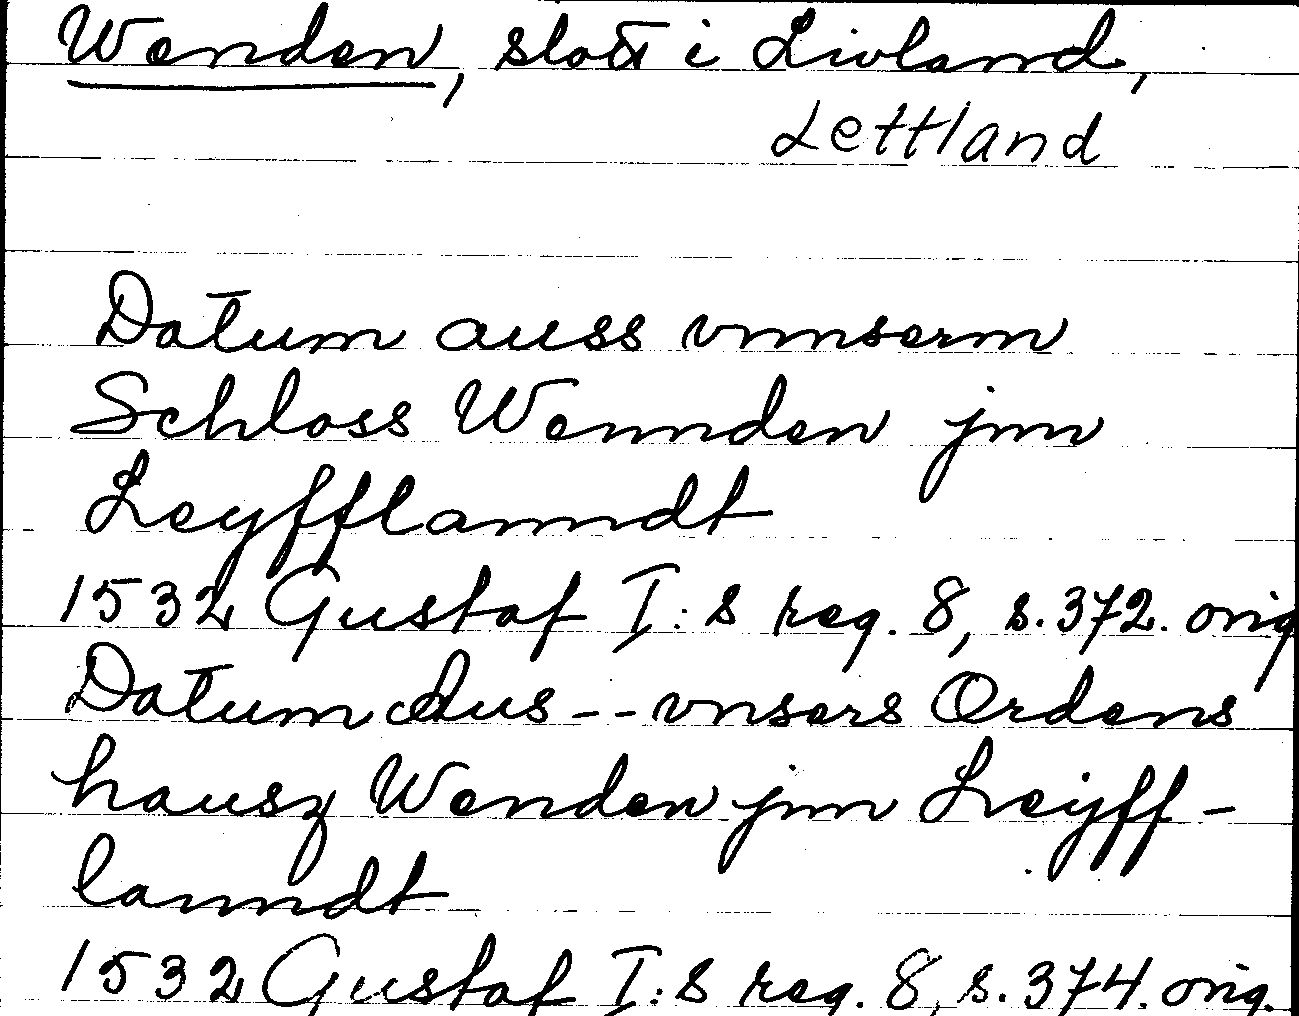 Wenden, slott i Livland,
Lettland
Datum auss vnnserm
Schloss Wennden jnn
Leyfflanndt
1532 Gustaf I:s reg. 8, s. 372. orig
Datum Aus -- vnsers Ordens
hausz Wenden jnn Leijff-
lanndt
1532 Gustaf I:s reg. 8, s. 374. orig.